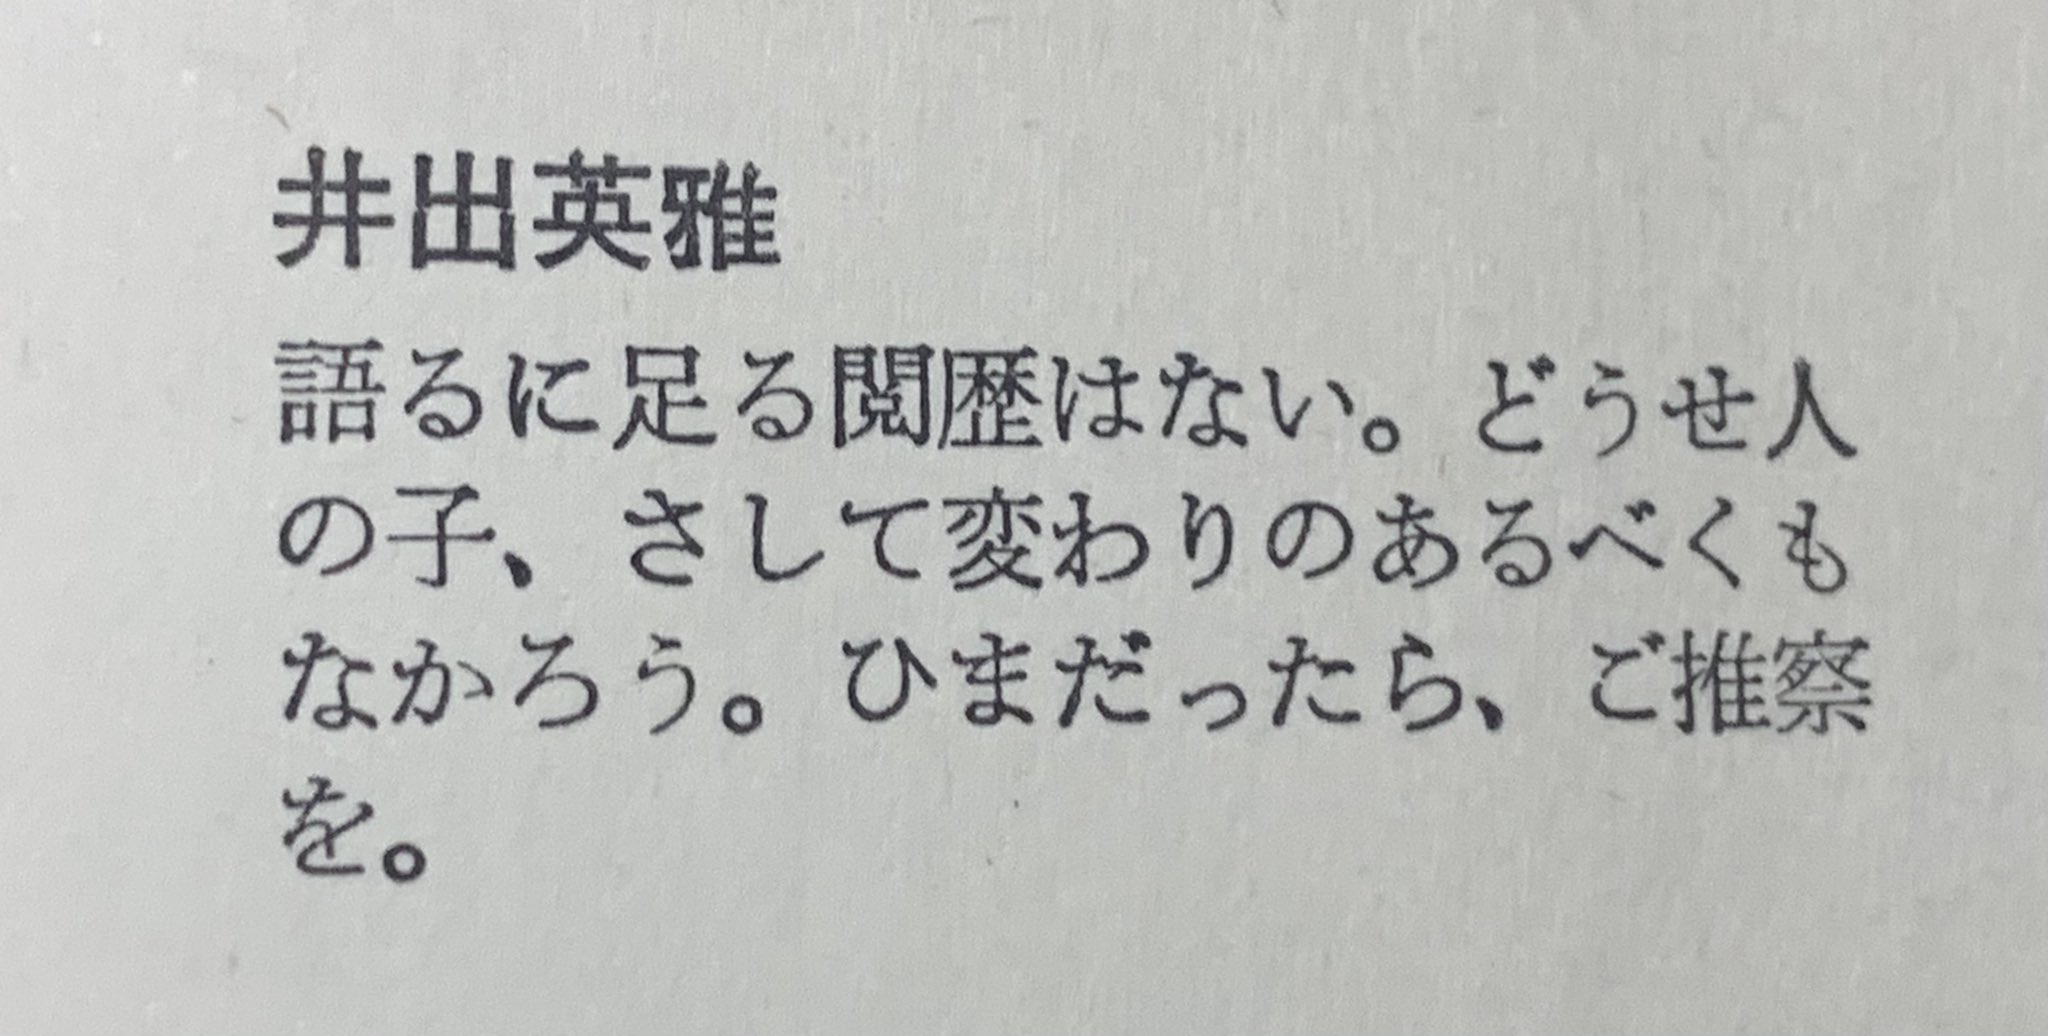 井出英雅
語るに足る閲歴はない。どうせ人
の子、さして変わりのあるべくも
なかろう。ひまだったら、ご推察
を。